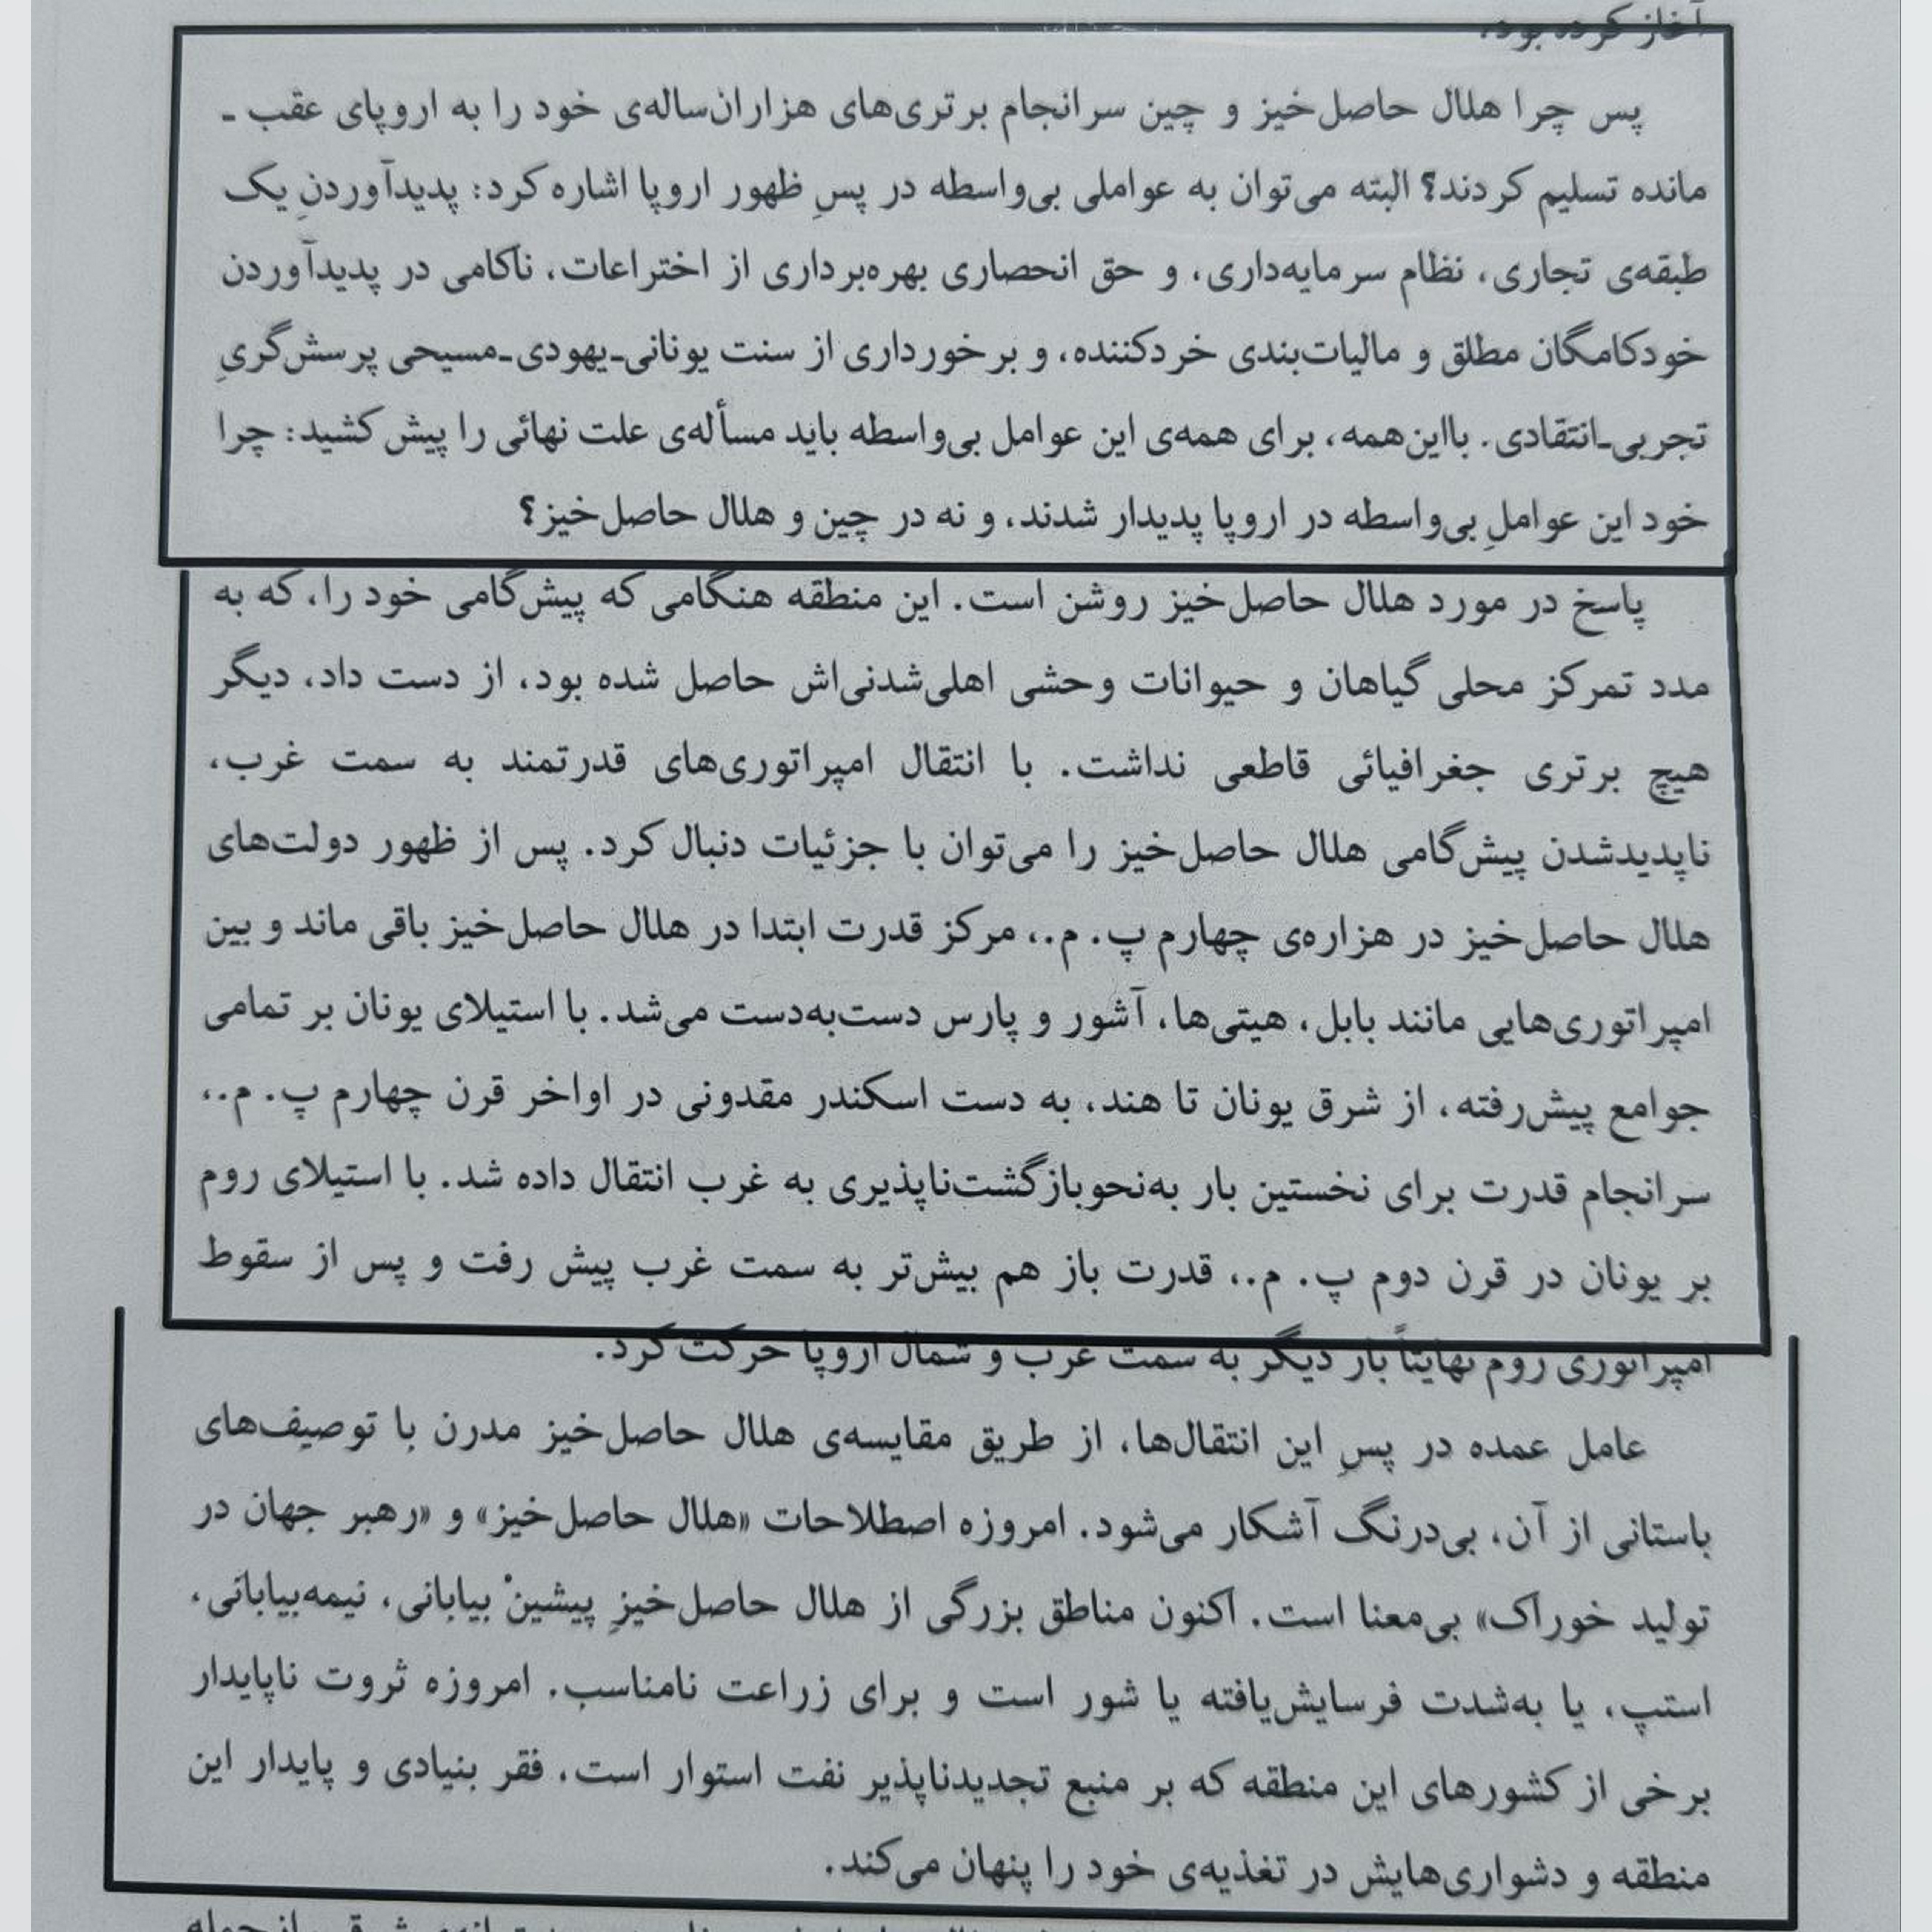 آغاز کرده بود.
پس چرا هلال حاصل‌خیز و چین سرانجام برتری‌های هزاران‌ساله‌ی خود را به اروپای عقب ـ
مانده تسلیم کردند؟ البته می‌توان به عواملی بی‌واسطه در پسِ ظهور اروپا اشاره کرد: پدیدآوردنِ یک
طبقه‌ی تجاری، نظام سرمایه‌داری، و حق انحصاری بهره‌برداری از اختراعات، ناکامی در پدیدآوردن
خودکامگان مطلق و مالیات‌بندی خردکننده، و برخورداری از سنت یونانی‌ـ‌یهودی‌ـ‌مسیحی پرسش‌گریِ
تجربی‌ـ‌انتقادی. بااین‌همه، برای همه‌ی این عوامل بی‌واسطه باید مسأله‌ی علت نهائی را پیش کشید: چرا
خود این عواملِ بی‌واسطه در اروپا پدیدار شدند، و نه در چین و هلال حاصل‌خیز؟
پاسخ در مورد هلال حاصل‌خیز روشن است. این منطقه هنگامی که پیش‌گامی خود را، که به
مدد تمرکز محلی گیاهان و حیوانات وحشی اهلی‌شدنی‌اش حاصل شده بود، از دست داد، دیگر
هیچ برتری جغرافیائی قاطعی نداشت. با انتقال امپراتوری‌های قدرتمند به سمت غرب،
ناپدیدشدن پیش‌گامی هلال حاصل‌خیز را می‌توان با جزئیات دنبال کرد. پس از ظهور دولت‌های
هلال حاصل‌خیز در هزاره‌ی چهارم پ. م.، مرکز قدرت ابتدا در هلال حاصل‌خیز باقی ماند و بین
امپراتوری‌هایی مانند بابل، هیتی‌ها، آشور و پارس دست‌به‌دست می‌شد. با استیلای یونان بر تمامی
جوامع پیش‌رفته، از شرق یونان تا هند، به دست اسکندر مقدونی در اواخر قرن چهارم پ. م.،
سرانجام قدرت برای نخستین بار به‌نحوبازگشت‌ناپذیری به غرب انتقال داده شد. با استیلای روم
بر یونان در قرن دوم پ. م.، قدرت باز هم بیش‌تر به سمت غرب پیش رفت و پس از سقوط
امپراتوری روم نهایتاً بار دیگر به سمت غرب و شمال اروپا حرکت کرد.
عامل عمده در پسِ این انتقال‌ها، از طریق مقایسه‌ی هلال حاصل‌خیز مدرن با توصیف‌های
باستانی از آن، بی‌درنگ آشکار می‌شود. امروزه اصطلاحات «هلال حاصل‌خیز» و «رهبر جهان در
تولید خوراک» بی‌معنا است. اکنون مناطق بزرگی از هلال حاصل‌خیزِ پیشینْ بیابانی، نیمه‌بیابانی،
استپ، یا به‌شدت فرسایش‌یافته یا شور است و برای زراعت نامناسب. امروزه ثروت ناپایدار
برخی از کشورهای این منطقه که بر منبع تجدیدناپذیر نفت استوار است، فقر بنیادی و پایدار این
منطقه و دشواری‌هایش در تغذیه‌ی خود را پنهان می‌کند.